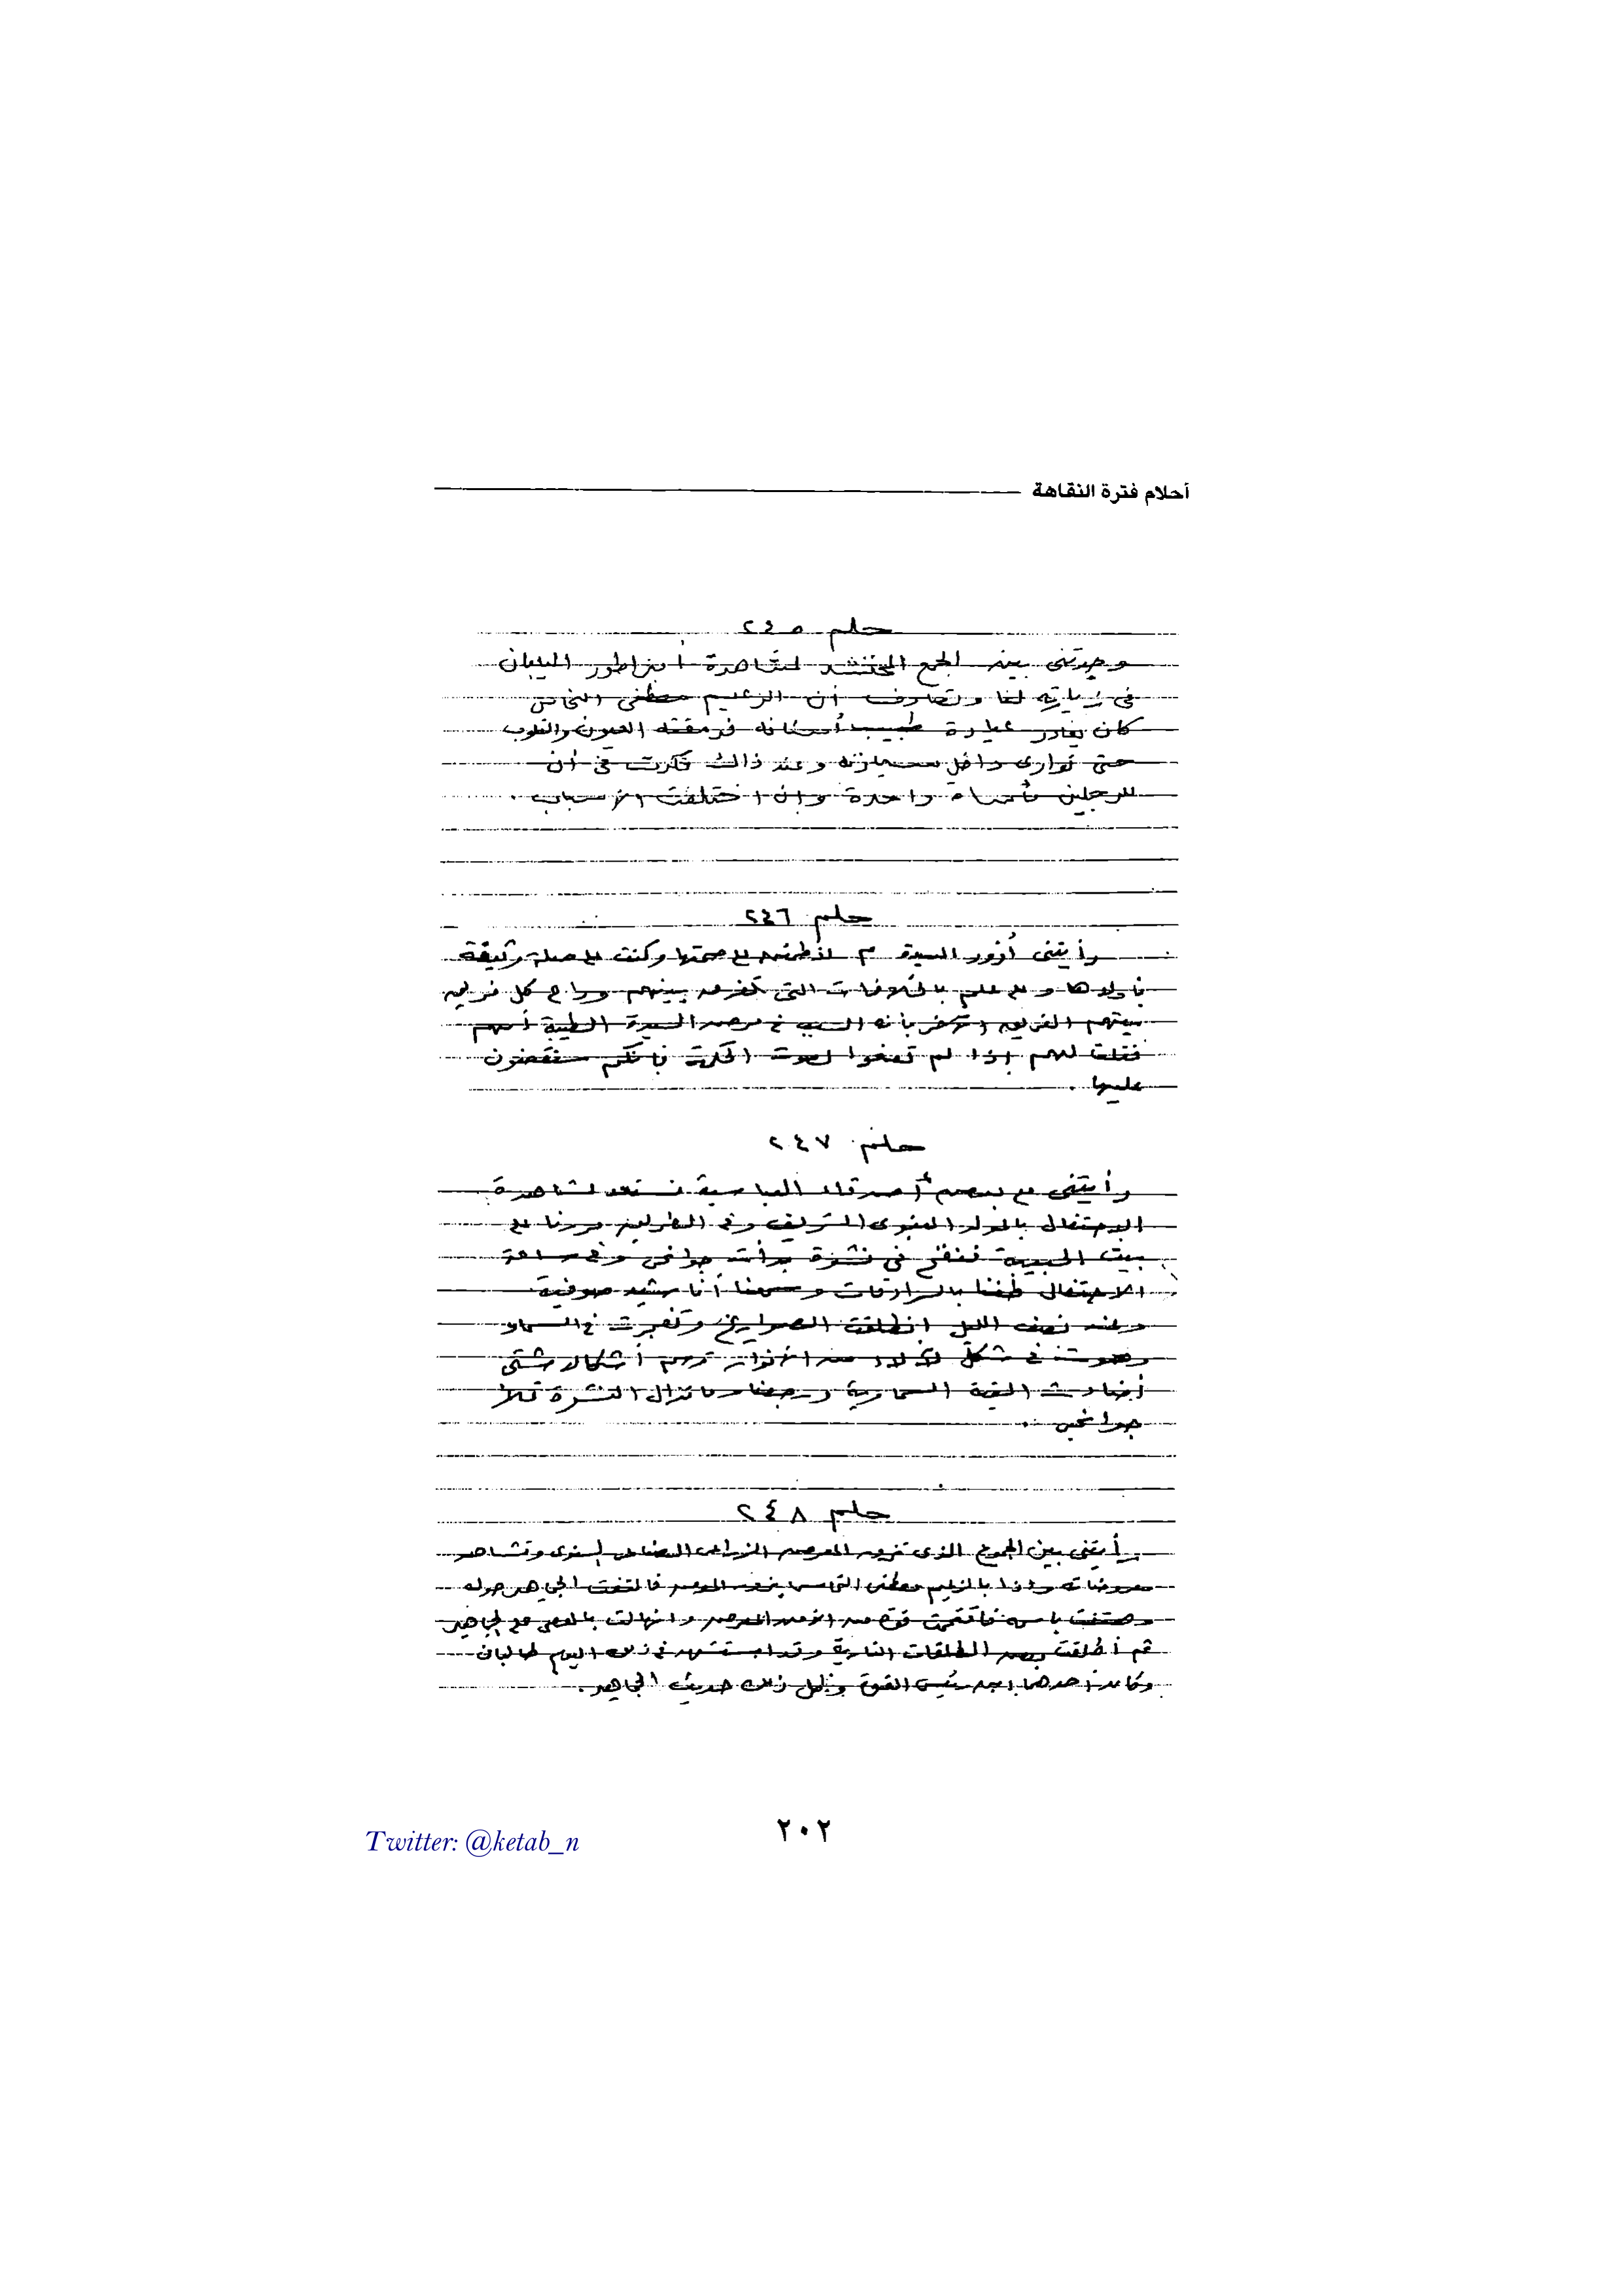 أحلام فترة النقاهة
حلم ٢٤٥
وجدتنى بين الجمع المحتشد لمشاهدة أمبراطور اليابان
فى زيارته لنا وتصادف أن الزعيم مصطفى النحاس
كان يغادر عيادة طبيب أسنانه فرمقته العيون والقلوب
حتى توارى داخل سيارته وعند ذاك فكرت فى أن
للرجلين مأساة واحدة وإن اختلفت الأسباب .
حلم ٢٤٦
رأيتنى أزور السيدة م لأطمئن على صحتها وكنت على صلة وثيقة
بأولادها وعلى علم بالخلافات التى تفرق بينهم وراح كل فريق
يتهم الفريق الآخر بأنه السبب فى مرض السيدة الطيبة أمهم
فقلت لهم إذا لم تصغوا لصوت الحكمة فانكم ستقضون
عليها .
حلم ٢٤٧
رأيتنى مع بعض أصدقاء العباسية نستعد لمشاهدة
الاحتفال بالمولد النبوى الشريف وفى الطريق مررنا على
بيت الحبيبة فنفخ فى نشوة بدأت جوانحى وفى ساحة
الاحتفال طفنا بالسرادقات وسمعنا أناشيد صوفية
وعند نصف الليل انطلقت الصواريخ وتفجرت فى السماء
وهوت فى شكل لآلاء من الأنوار ترسم أشكالا شتى
أضاءت القبة السماوية ورجعنا وما تزال النشوة تملأ
جوانحى .
حلم ٢٤٨
رأيتنى بين الجموع الذى تزور المعرض الزراعى الصناعى السنوى وتشاهد
معروضاته وإذا بالزعيم مصطفى النحاس يزور المعرض فالتفت الجماهير حوله
وهتفت باسمه فاقتحمت قوة من الأمن المعرض وانهالت بالعصى على الجماهير
ثم أطلقت بعض الطلقات النارية وقد استشهد فى ذلك اليوم طالبان
وكان أحدهما ابن رئيس القوة وظل ذلك حديث الجماهير .
٢٠٢
Twitter: @ketab_n